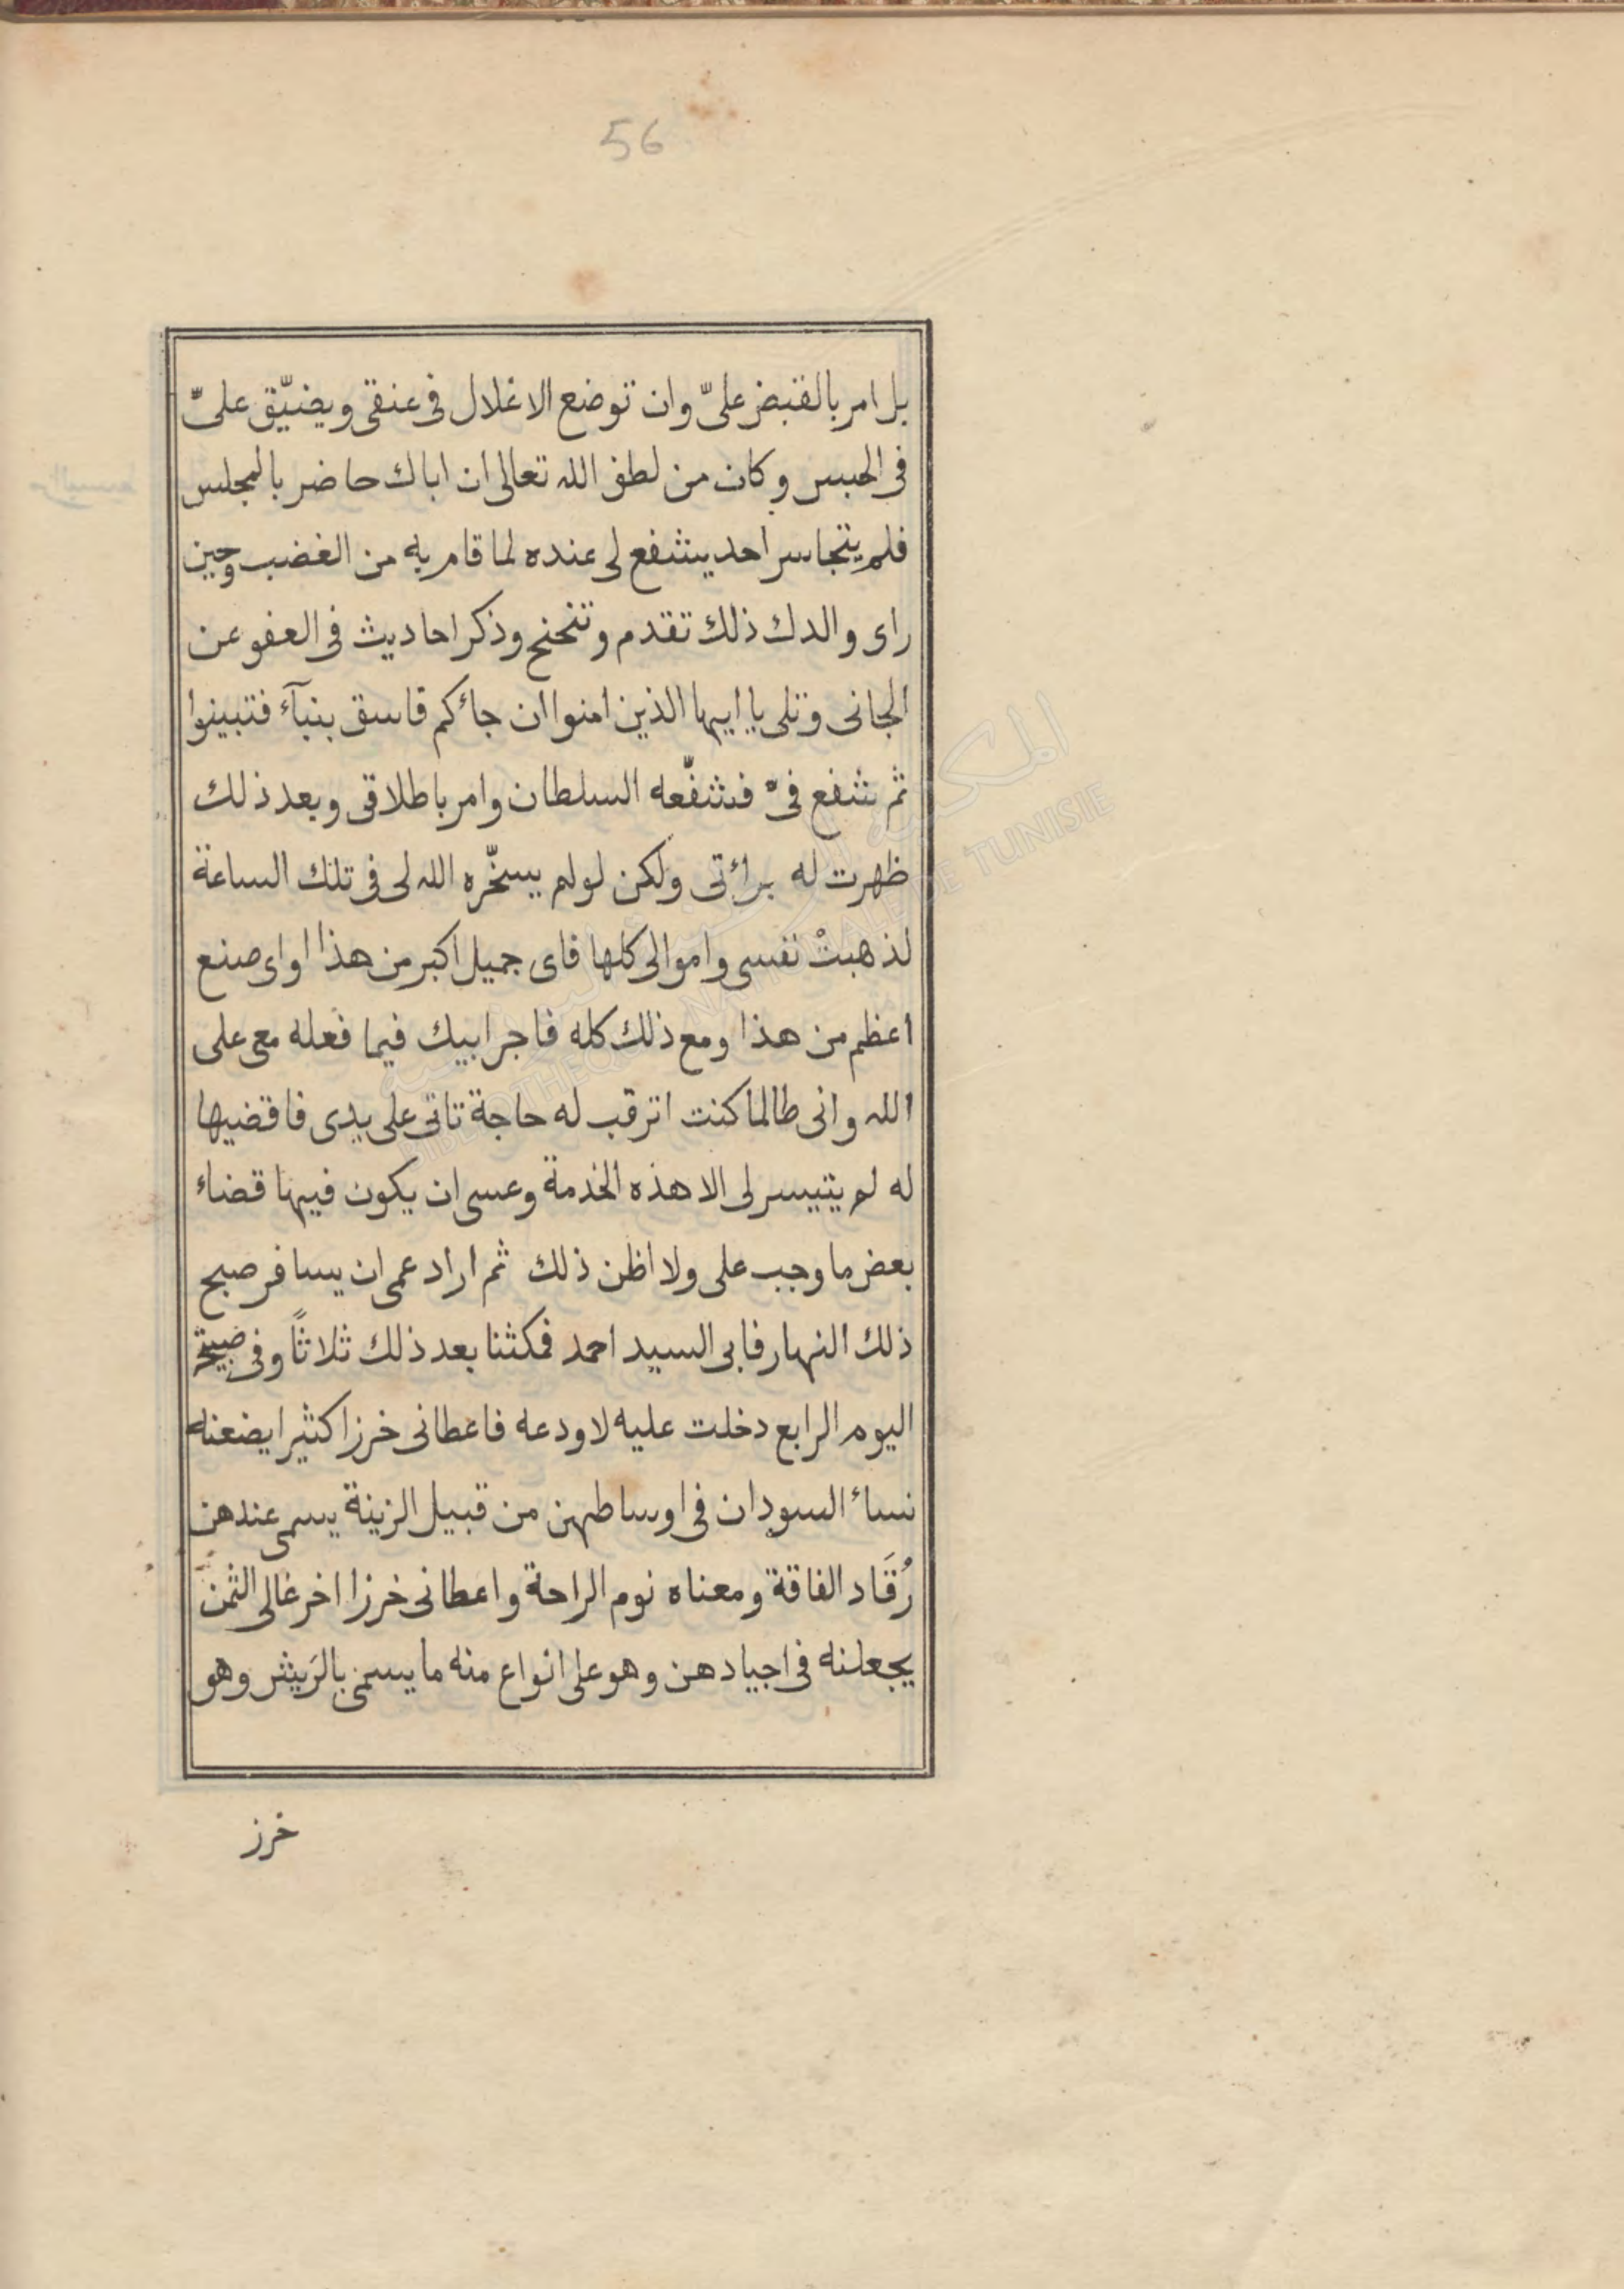 56
بل امر بالقبض علىّ وان توضع الاغلال فى عنقى ويضيّق علىّ
فى الحبس وكان من لطف الله تعالى ان اباك حاضر بالمجلس
فلم يتجاسر احد يشفع لى عنده لما قام به من الغضب وحين
راى والدك ذلك تقدم وتنحنح وذكر احاديث فى العفو عن
الجانى وتلى يا ايها الذين امنوا ان جائكم فاسق بنبآء فتبينوا
ثم شفع فىّ فشفّعه السلطان وامر باطلاقى وبعد ذلك
ظهرت له برائتى ولكن لو لم يسخّره الله لى فى تلك الساعة
لذهبتْ نفسى واموالى كلها فاى جميل اكبر من هذا او اى صنع
اعظم من هذا ومع ذلك كله فاجر ابيك فيما فعله معى على
الله وانى طالما كنت اترقب له حاجة تاتى على يدى فاقضيها
له لم يتيسر لى الا هذه الخدمة وعسى ان يكون فيها قضاء
بعض ما وجب على ولا اظن ذلك ثم اراد عمى ان يسافر صبح
ذلك النهار فابى السيد احمد فمكثنا بعد ذلك ثلاثاً وفى صبيحة
اليوم الرابع دخلت عليه لاودعه فاعطانى خرزا كثيرا يضعنه
نساء السودان فى اوساطهن من قبيل الزينة يسمى عندهن
رُقَاد الفاقة ومعناه نوم الراحة واعطانى خرزا اخر غالى الثمن
يجعلنه فى اجيادهن وهو على انواع منه ما يسمى بالرَيش وهو
خرز
المكتبة
BIBLIOTHEQUE NATIONALE DE TUNISIE